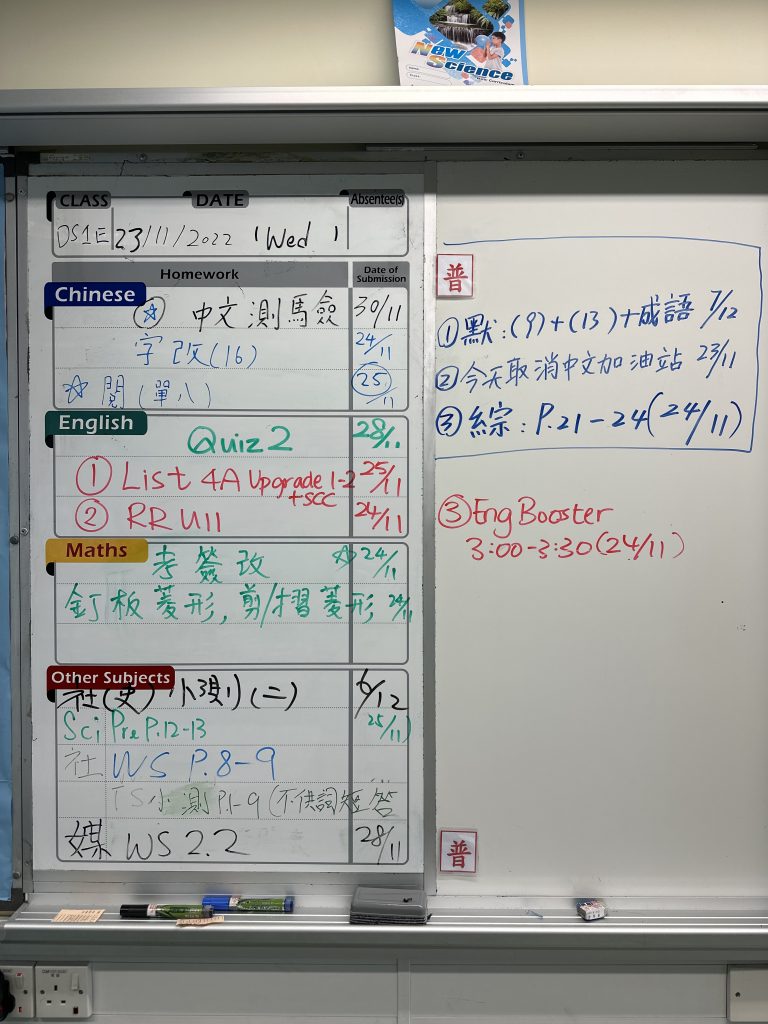 New
Science
CLASS DATE Absentee(s)
DS1E 23/11/2022 (Wed)
Homework Date of Submission
Chinese
☆ 中文測馬僉 30/11
字改(16) 24/11
☆ 閱(單八) 25/11
English
Quiz 2 28/11
① List 4A Upgrade 1-2 +SCC 25/11
② RR U11 24/11
Maths
考簽改 ☆24/11
釘板菱形,剪/摺菱形 24/11
Other Subjects
社(史)小測(二) 6/12
Sci Pre P.12-13 25/11
社 WS P.8-9
小測 P.1-9 (不供詞短答
媒 WS 2.2 28/11
普
①默:(9)+(13)+成語 7/12
②今天取消中文加油站 23/11
③綜:P.21-24(24/11)
③Eng Booster
3:00-3:30(24/11)
普